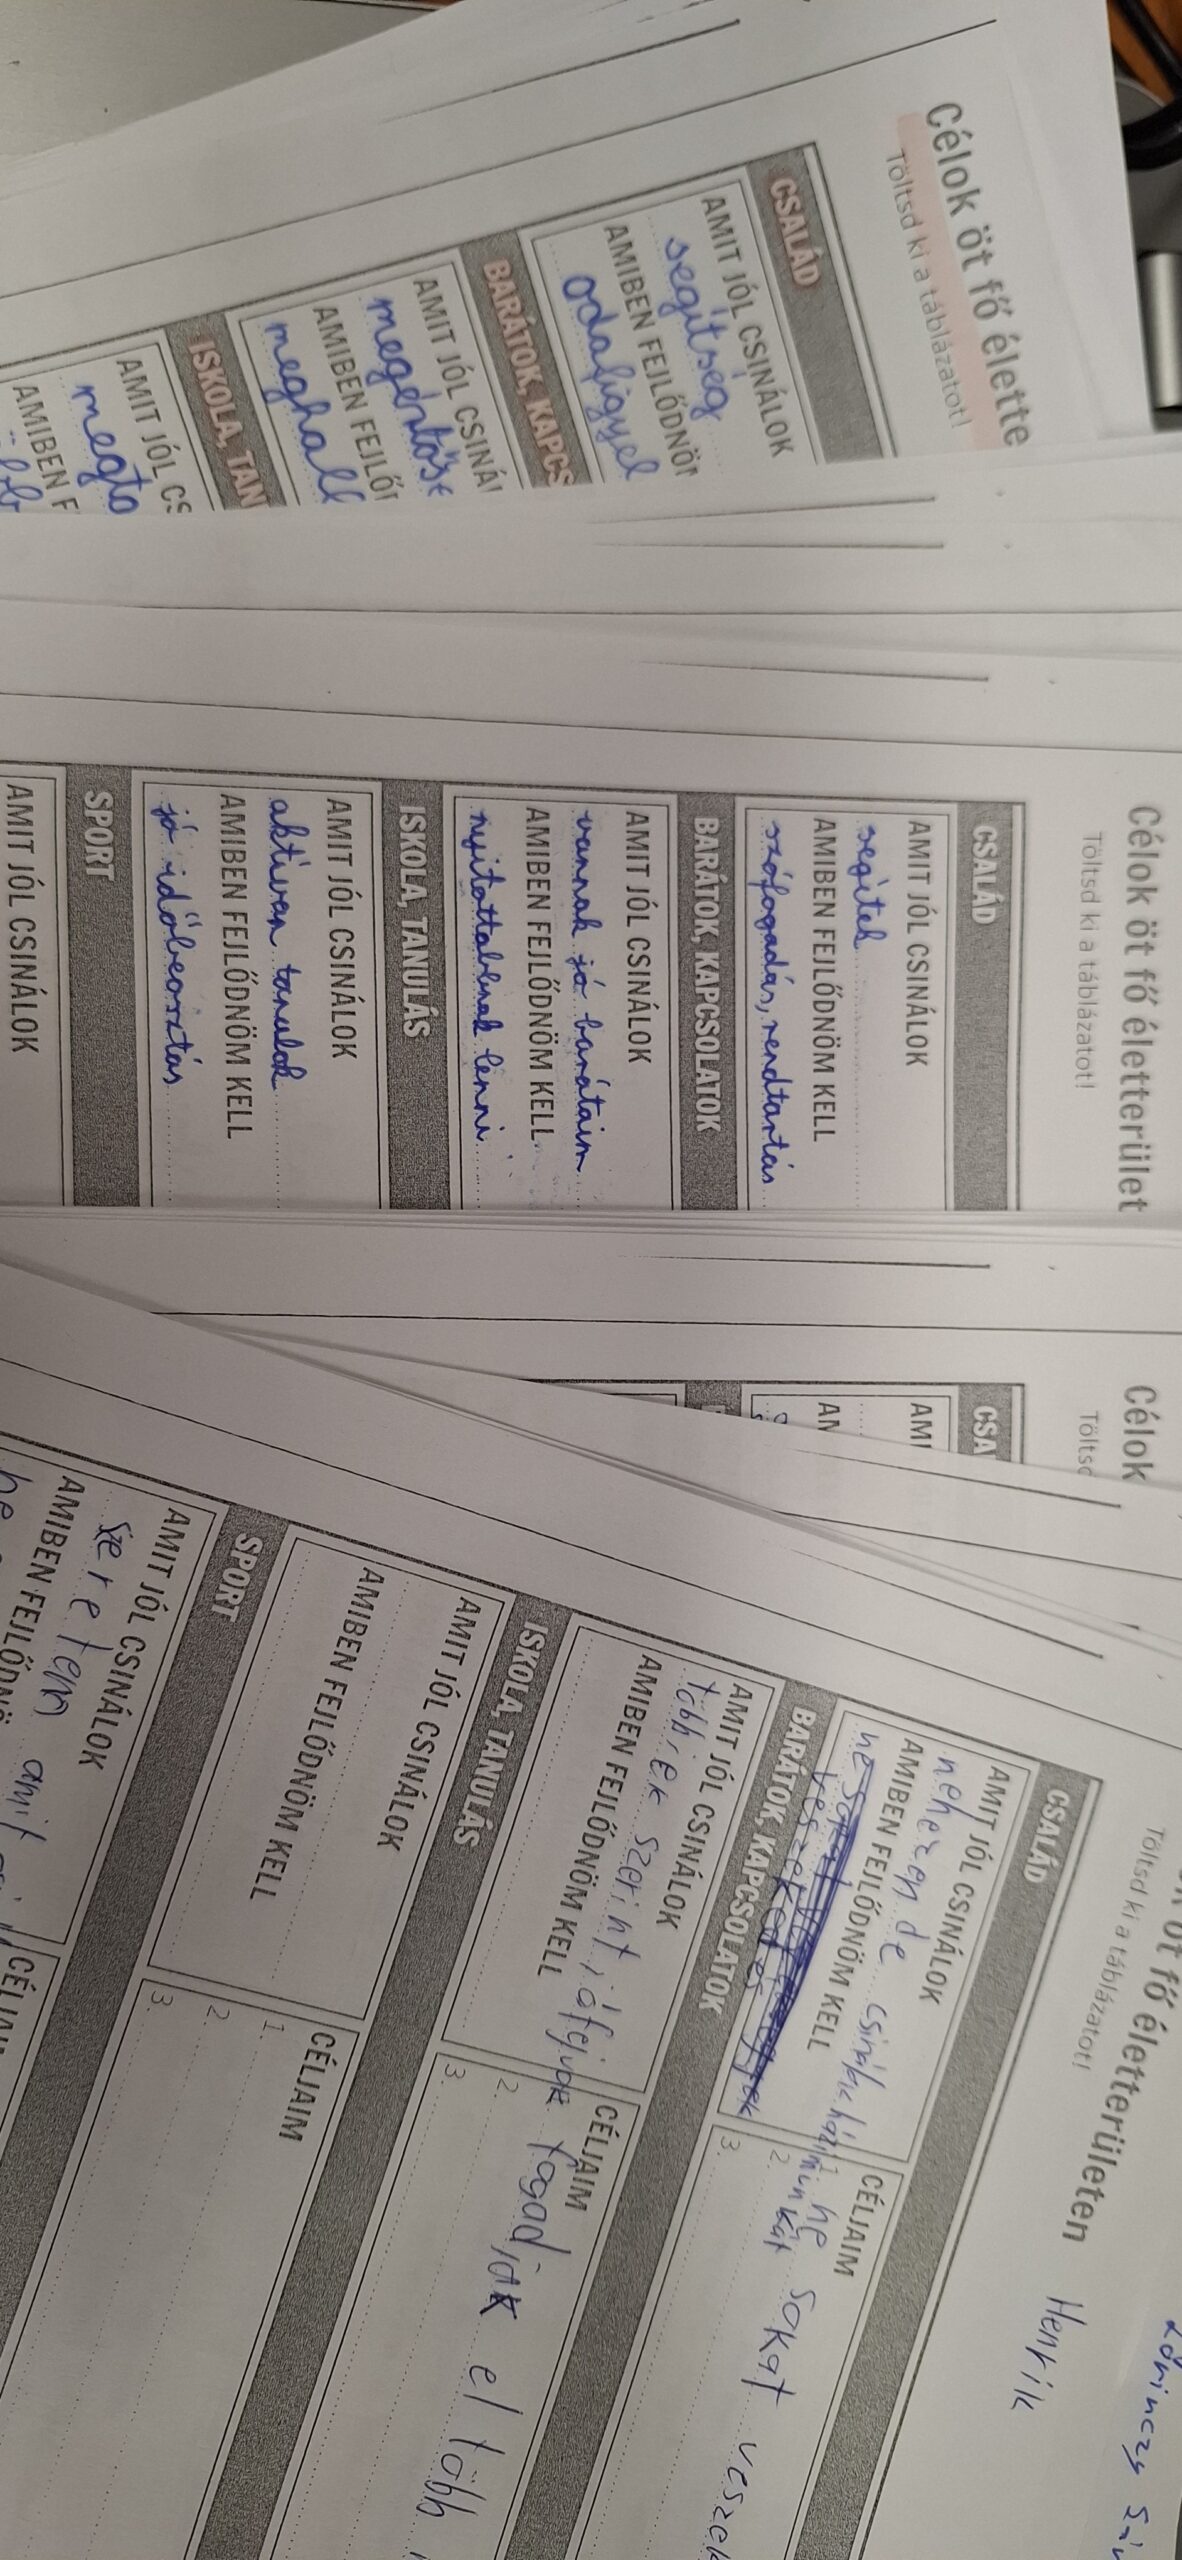 Célok öt fő élette
Töltsd ki a táblázatot!
CSALÁD
AMIT JÓL CSINÁLOK
segítség
AMIBEN FEJLŐDNÖM
odafigyel
BARÁTOK, KAPCS
AMIT JÓL CSINÁL
megértős
AMIBEN FEJLŐ
meghall
ISKOLA, TAN
AMIT JÓL CS
megta
AMIBEN F
Célok öt fő életterület
Töltsd ki a táblázatot!
CSALÁD
AMIT JÓL CSINÁLOK
segítek
AMIBEN FEJLŐDNÖM KELL
szófogadás, rendtartás
BARÁTOK, KAPCSOLATOK
AMIT JÓL CSINÁLOK
vannak jó barátaim
AMIBEN FEJLŐDNÖM KELL
nyitottabbnak lenni
ISKOLA, TANULÁS
AMIT JÓL CSINÁLOK
aktívan tanulok
AMIBEN FEJLŐDNÖM KELL
jó időbeosztás
SPORT
AMIT JÓL CSINÁLOK
Célok
Töltsd
CSA
AMI
AM
öt fő életterületen
Henrik
Töltsd ki a táblázatot!
CSALÁD
AMIT JÓL CSINÁLOK
nehezen de csinálok házimunkát
AMIBEN FEJLŐDNÖM KELL
CÉLJAIM
1.
2.
3.
ne sokat veszek
BARÁTOK, KAPCSOLATOK
AMIT JÓL CSINÁLOK
többiek szerint jófej
AMIBEN FEJLŐDNÖM KELL
CÉLJAIM
fogadják el több
2.
3.
ISKOLA, TANULÁS
AMIT JÓL CSINÁLOK
AMIBEN FEJLŐDNÖM KELL
CÉLJAIM
1.
2.
3.
SPORT
AMIT JÓL CSINÁLOK
szeretem amit
AMIBEN FEJLŐDNÖ
CÉLJAI